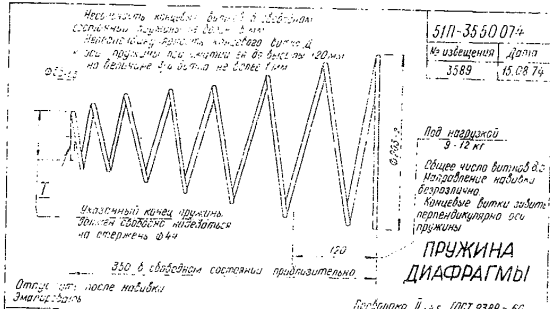 Несоосность концевых витков в свободном
состоянии пружины не более 5 мм
витка
оси пружины при сжатии её до высоты 120мм
на величине 3/4 витка не более 1 мм
51П-3550074
№ извещения Дата
3589 15.08.74
Под нагрузкой
9-12 кг
Общее число витков
Направление навивки
безразлично
Концевые витки
перпендикулярно оси
пружины
Указанный конец пружины
должен свободно надеваться
на стержень Ф44
120
350 в свободном состоянии приблизительно
ПРУЖИНА
ДИАФРАГМЫ
после навивки
Эмалировать
Проволока ГОСТ 9389-60